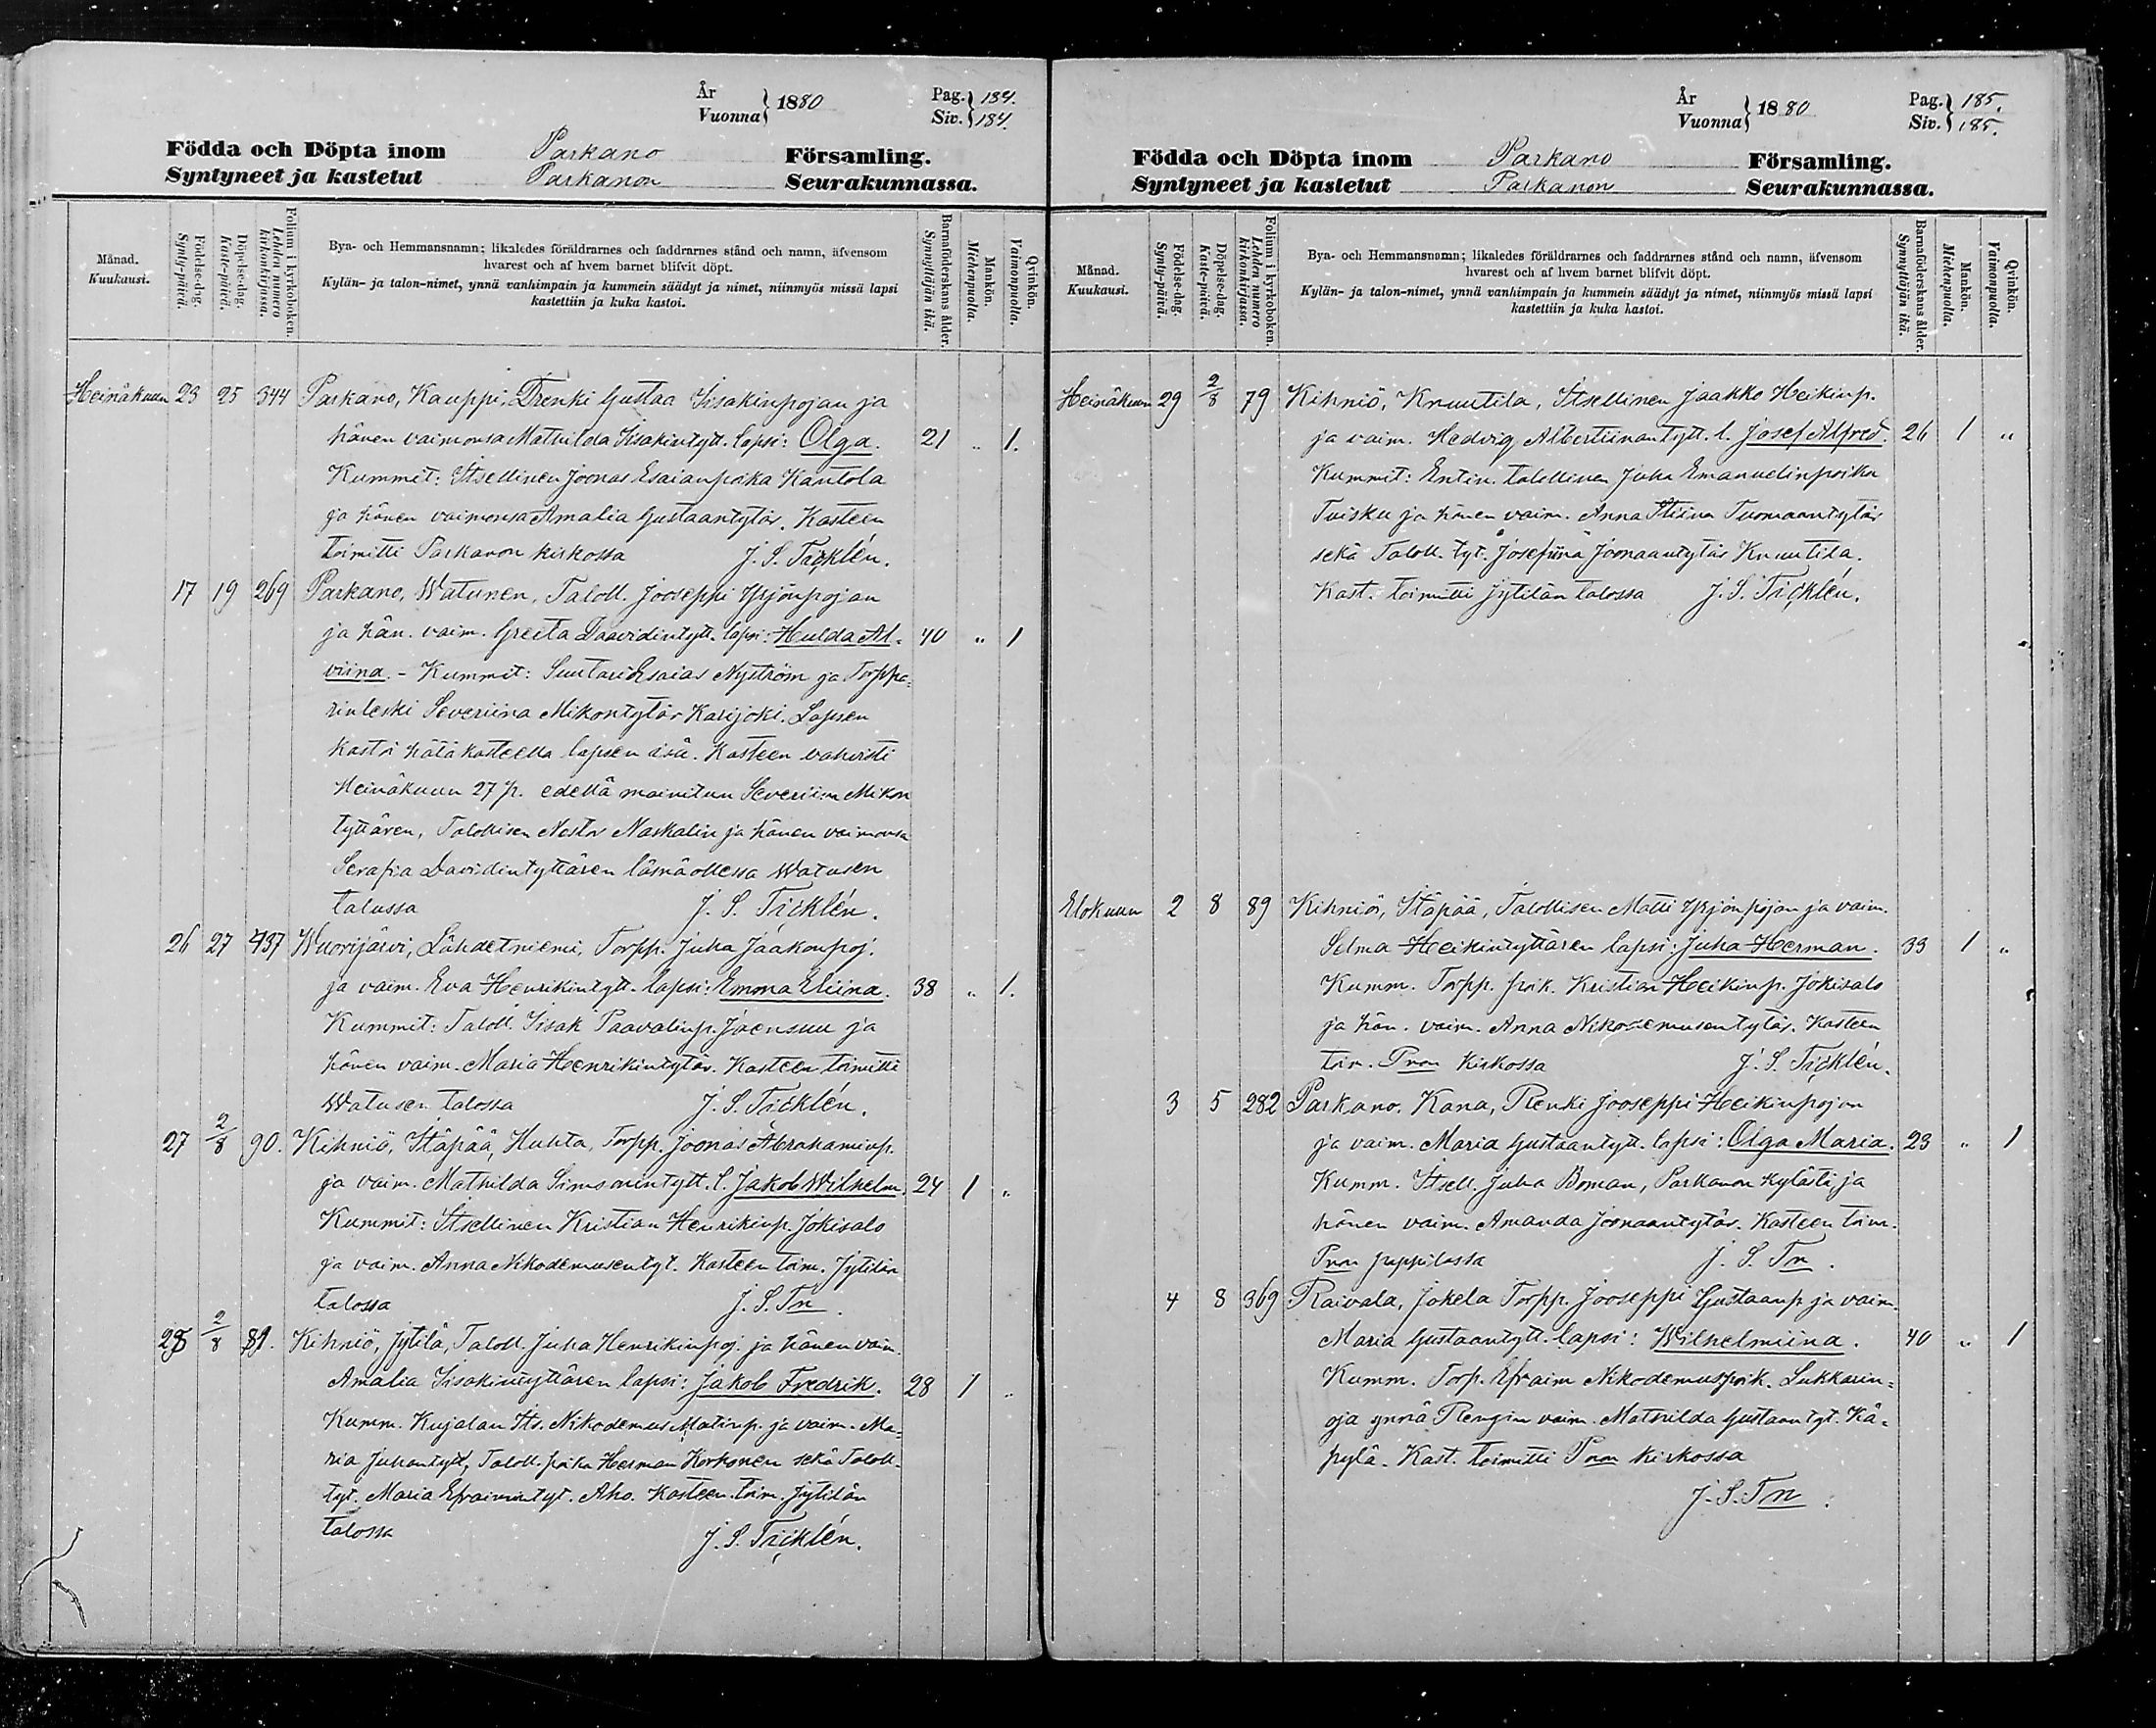 År
Vuonna } 1880
Pag. } 184.
Siv. } 184.
Födda och Döpta inom Parkano Församling.
Syntyneet ja kastetut Parkanon Seurakunnassa.
Månad.
Kuukausi.
Födelse-dag.
Synty-päivä.
Döpelse-dag.
Kaste-päivä.
Folium i kyrkoboken.
Lehden numero
kirkonkirjassa.
Bya- och Hemmansnamn; likaledes föräldrarnes och faddrarnes stånd och namn, äfvensom
hvarest och af hvem barnet blifvit döpt.
Kylän- ja talon-nimet, ynnä vanhimpain ja kummein säädyt ja nimet, niinmyös missä lapsi
kastettiin ja kuka kastoi.
Barnaföderskans ålder.
Synnyttäjän ikä.
Mankön.
Miehenpuolia.
Qvinkön.
Vaimonpuolia.
Heinäkuun 23 25 344 Parkano, Kauppi, Drenki Gustaa Iisakinpojan ja
hänen vaimonsa Mathilda Iisakintytt. lapsi: Olga. 21 „ 1.
Kummit: Itsellinen Joonas Esaianpoika Kantola
ja hänen vaimonsa Amalia Gustaantytär. Kasteen
toimitti Parkanon kirkossa J. S. Täcklén.
17 19 269 Parkano, Watunen, Taloll. Jooseppi Yrjönpojan
ja hän. vaim. Greeta Daavidintytt. lapsi: Hulda Al- 40 „ 1
viina. - Kummit: Suutari Esaias Nyström ja Torppa-
rinleski Severiina Mikontytär Karijoki. Lapsen
kastoi hätäkasteella lapsen äiti. Kasteen vahvisti
Heinäkuun 27 p. edellä mainitun Severiina Mikon
tyttären, Talollisen Nestor Naskalin ja hänen vaimonsa
Serafia Davidintyttären läsnäollessa Watusen
talossa J. S. Täcklén.
26 27 437 Wuorijärvi, Lähdetniemi, Torpp. Juha Jaakonpoj.
ja vaim. Eva Henrikintytt. lapsi: Emma Eliina. 38 „ 1.
Kummit: Taloll. Iisak Paavalinp. Joensuu ja
hänen vaim. Maria Henrikintytär. Kasteen toimitti
Watusen talossa J. S. Täcklén.
27 2/8 90. Kihniö, Stäpää, Huhta, Torpp. Joonas Abrahaminp.
ja vaim. Mathilda Simsonintytt. l. Jakob Wilhelm. 24 1 „
Kummit: Itsellinen Kristian Henrikinp. Jokisalo
ja vaim. Anna Nikodemusentyt. Kasteen toim. Jytilän
talossa J. S. Tn.
28 2/8 81. Kihniö, Jytilä, Taloll. Juha Henrikinpoj. ja hänen vaim.
Amalia Iisakintyttären lapsi: Jakob Fredrik. 28 1 „
Kumm. Kujalan Its. Nikodemus Matinp. ja vaim. Ma-
ria Juhantytt, Taloll. poika Herman Korhonen sekä Taloll.
tyt. Maria Efraimintyt. Aho. Kasteen. toim. Jytilän
talossa J. S. Täcklén.
År
Vuonna } 1880
Pag. } 185.
Siv. } 185.
Födda och Döpta inom Parkano Församling.
Syntyneet ja kastetut Parkanon Seurakunnassa.
Månad.
Kuukausi.
Födelse-dag.
Synty-päivä.
Döpelse-dag.
Kaste-päivä.
Folium i kyrkoboken.
Lehden numero
kirkonkirjassa.
Bya- och Hemmansnamn; likaledes föräldrarnes och faddrarnes stånd och namn, äfvensom
hvarest och af hvem barnet blifvit döpt.
Kylän- ja talon-nimet, ynnä vanhimpain ja kummein säädyt ja nimet, niinmyös missä lapsi
kastettiin ja kuka kastoi.
Barnaföderskans ålder.
Synnyttäjän ikä.
Mankön.
Miehenpuolia.
Qvinkön.
Vaimonpuolia.
Heinäkuun 29 2/8 79 Kihniö, Knuutila, Itsellinen Jaakko Heikinp.
ja vaim. Hedvig Albertiinantytt. l. Josef Alfred. 26 1 „
Kummit: Entin. talollinen Juha Emanuelinpoika
Tuisku ja hänen vaim. Anna Stiina Tuomaantytär
sekä Taloll. tyt. Josefiina Joonaantytär Knuutila.
Kast. toimitti Jytilän talossa J. S. Täcklén.
Elokuun 2 8 89 Kihniö, Stäpää, Talollisen Matti Yrjönpojan ja vaim.
Selma Heikintyttären lapsi: Juha Herman. 33 1 „
Kumm. Torpp. poik. Kristian Heikinp. Jokisalo
ja hän. vaim. Anna Nikodemusentytär. Kasteen
toim. Pnon kirkossa J. S. Täcklén.
3 5 282 Parkano. Kana, Renki Jooseppi Heikinpojan
ja vaim. Maria Gustaantytt. lapsi: Olga Maria. 23 „ 1
Kumm. Itsell. Juha Boman, Parkanon kylästä ja
hänen vaim. Amanda Joonaantytär. Kasteen toim.
Pnon pappilassa J. S. Tn.
4 8 369 Raivala, Jokela Torpp. Jooseppi Gustaanp. ja vaim.
Maria Gustaantytt. lapsi: Wilhelmiina. 40 „ 1
Kumm. Torp. Efraim Nikodemuspoik. Lukkarin-
oja ynnä Rengin vaim. Mathilda Gustaantyt. Kä-
pylä. Kast. toimitti Pnon kirkossa
J. S. Tn.